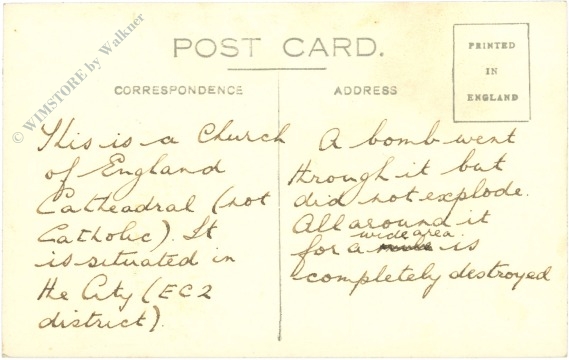 © WIMSTORE by Walkner
POST CARD.
PRINTED
IN
ENGLAND
CORRESPONDENCE
ADDRESS
This is a Church
of England
Catheadral (not
Catholic). It
is situated in
the City (EC2
district).
A bomb went
through it but
did not explode.
All around it
wide area.
for a is
completely destroyed